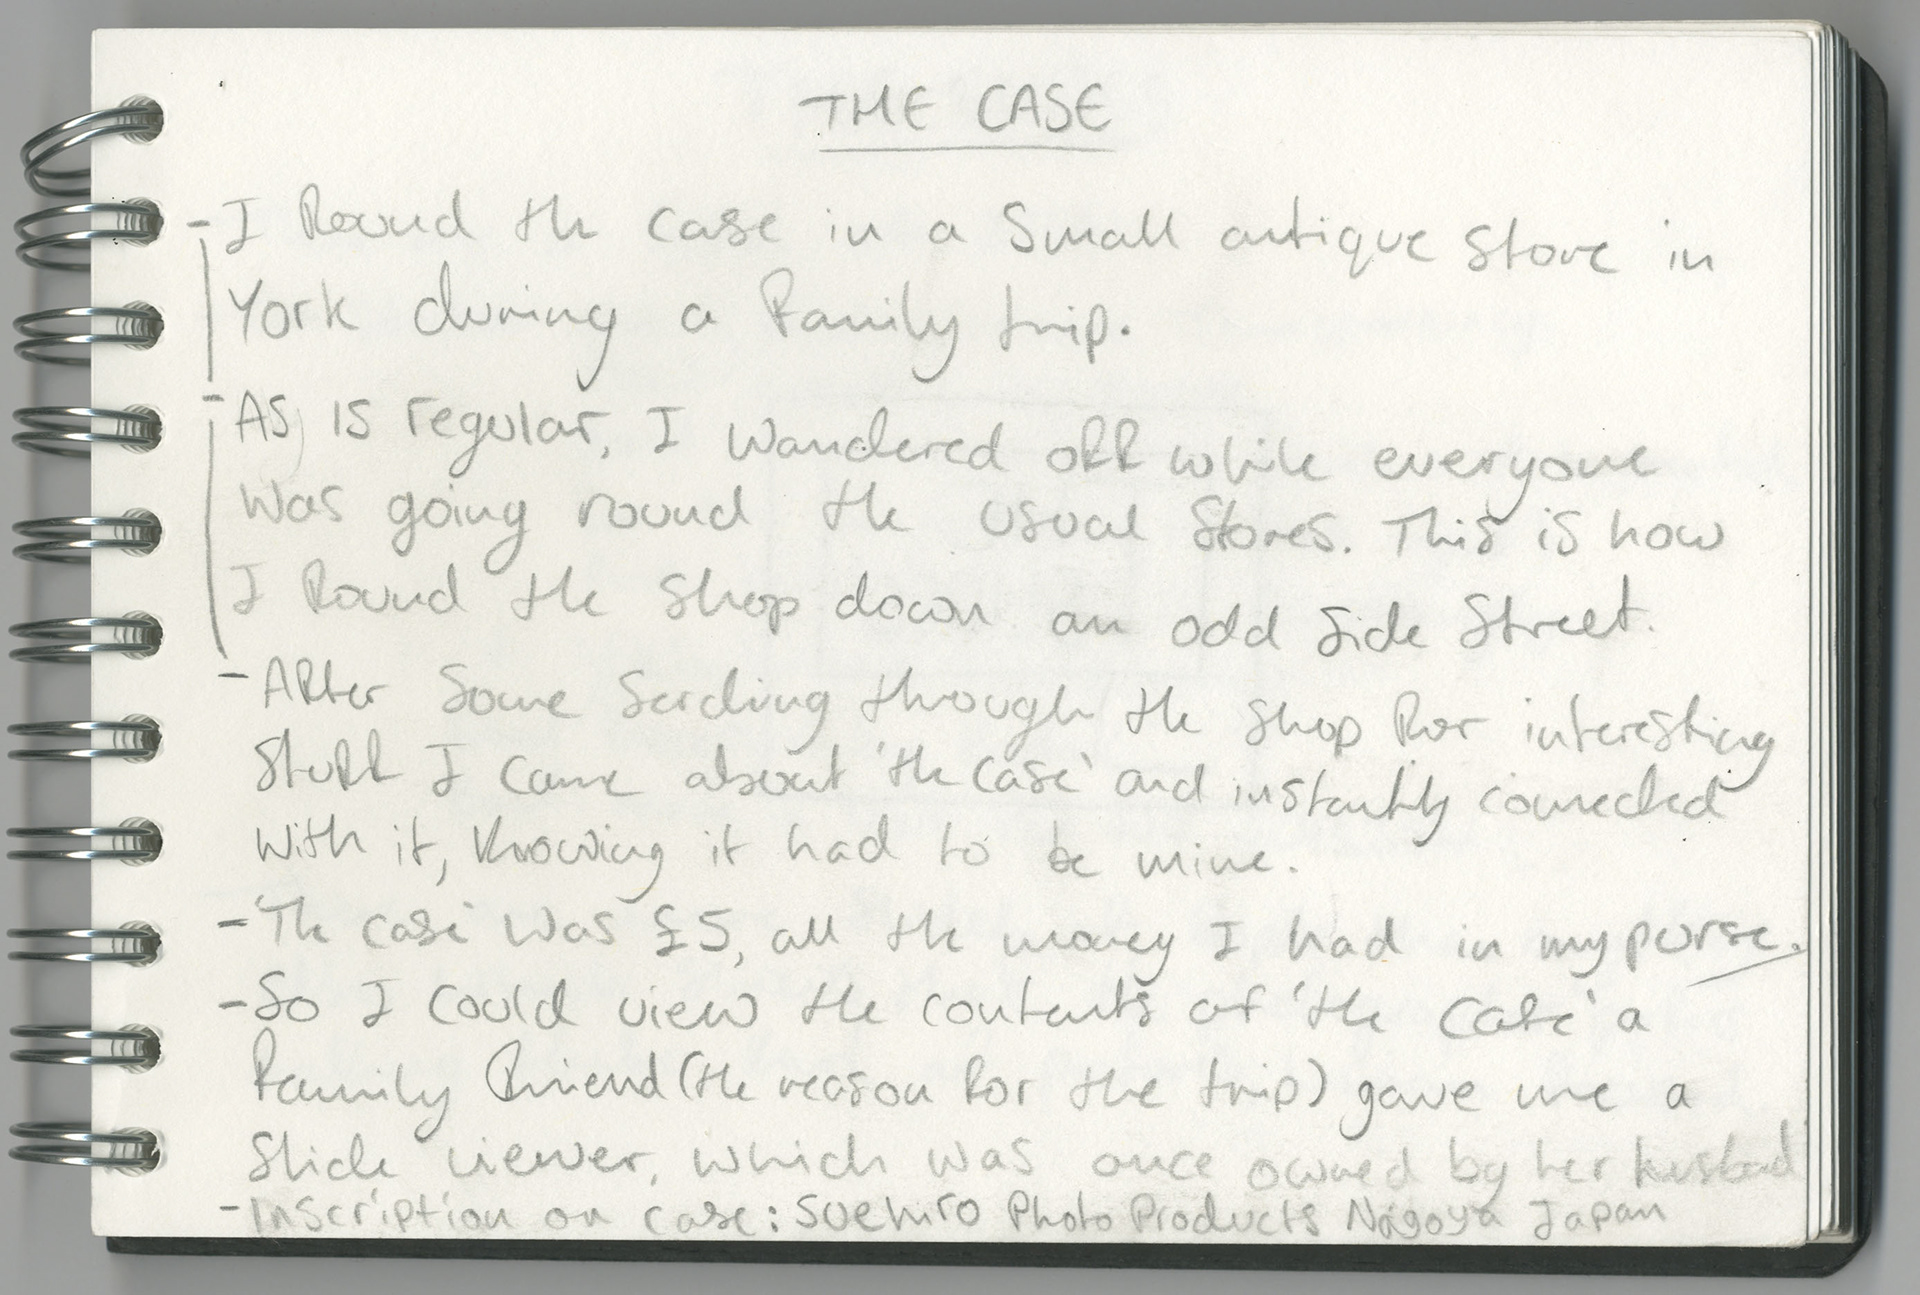 THE CASE
- I found the case in a small antique store in
York during a family trip.
- As is regular, I wandered off while everyone
was going round the usual stores. This is how
I found the shop down an odd side street.
- After some serching through the shop for interesting
stuff I came about 'the case' and instantly connected
with it, knowing it had to be mine.
- 'The case' was £5, all the money I had in my purse.
- So I could view the contents of 'the case' a
family friend (the reason for the trip) gave me a
slide viewer, which was once owned by her husband
- Inscription on case: Suehiro Photo Products Nagoya Japan